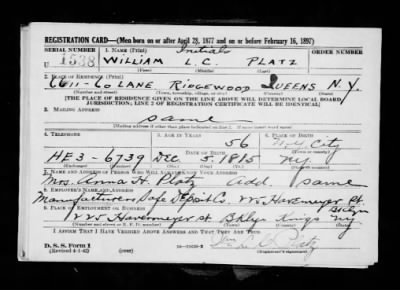 REGISTRATION CARD—(Men born on or after April 28, 1877 and on or before February 16, 1897)
SERIAL NUMBER 1. NAME (Print) Initials ORDER NUMBER
U 1538 WILLIAM L. C. PLATZ
(First) (Middle) (Last)
2. PLACE OF RESIDENCE (Print)
6611-60 LANE, RIDGEWOOD QUEENS N.Y.
(Number and street) (Town, township, village, or city) (County) (State)
[THE PLACE OF RESIDENCE GIVEN ON THE LINE ABOVE WILL DETERMINE LOCAL BOARD
JURISDICTION; LINE 2 OF REGISTRATION CERTIFICATE WILL BE IDENTICAL]
3. MAILING ADDRESS
same
[Mailing address if other than place indicated on line 2. If same insert word same]
4. TELEPHONE 5. AGE IN YEARS 6. PLACE OF BIRTH
56 N.Y. City
DATE OF BIRTH (Town or county)
HE 3-6739 Dec. 5. 1815 N.Y.
(Exchange) (Number) (Mo.) (Day) (Yr.) (State or country)
7. NAME AND ADDRESS OF PERSON WHO WILL ALWAYS KNOW YOUR ADDRESS
Mrs. Anna H. Platz Add. same
8. EMPLOYER'S NAME AND ADDRESS
Manufacturers Safe Deposit Co. 225 Havemeyer St. Bklyn
9. PLACE OF EMPLOYMENT OR BUSINESS
225 Havemeyer St Bklyn Kings NY
(Number and street or R. F. D. number) (Town) (County) (State)
I AFFIRM THAT I HAVE VERIFIED ABOVE ANSWERS AND THAT THEY ARE TRUE.
D. S. S. Form 1
(Revised 4-1-42) (over)
Wm L C Platz
(Registrant's signature)